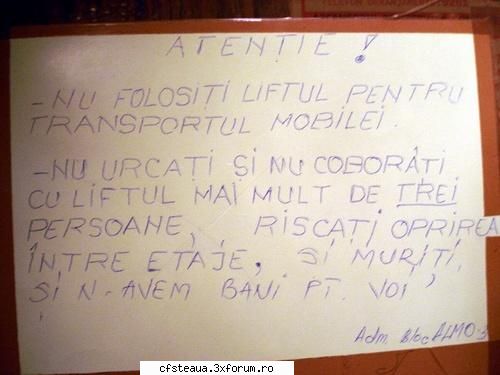 ATENȚIE!
-NU FOLOSIȚI LIFTUL PENTRU
TRANSPORTUL MOBILEI.
-NU URCAȚI ȘI NU COBORÂȚI
CU LIFTUL MAI MULT DE TREI
PERSOANE, RISCAȚI OPRIREA
ÎNTRE ETAJE, ȘI MURIȚI,
ȘI N-AVEM BANI PT. VOI
Adm. Bloc ALMO-3
cfsteaua.3xforum.ro